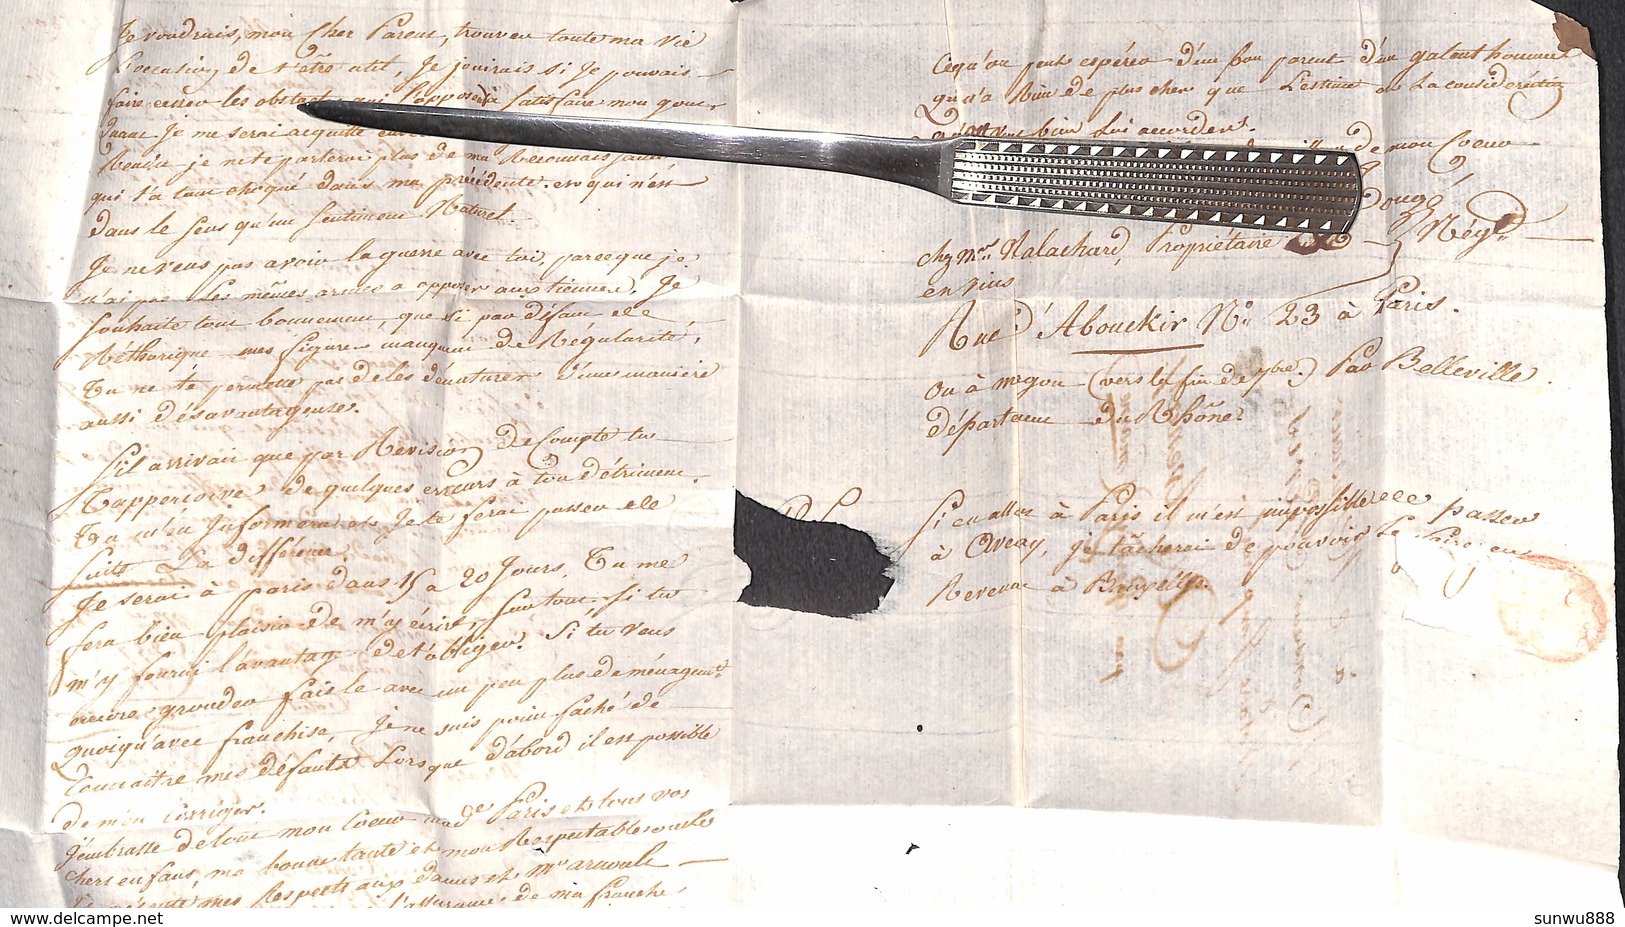 Je voudrais, mon Cher Parent, trouver toute ma vie
l'occasion de t'être util, Je jouirais si Je pouvais
faire cesser les obstacles qui s'opposent à satisfaire mon
Je me serai acquitté
je ne te parlerai plus de ma Reconnaissance
qui t'a tant choqué dans ma précédente. et qui n'est
dans le fens qu'un sentiment Naturel.
Je ne veus pas avoir la guerre avec toi, parceque je
n'ai pas les mêmes armes a opposer aux tiennes. Je
souhaite tout bonnement, que si par défaut de
Réthorique mes figures manquent de Régularité,
tu ne te permette pas de les dénaturer d'une manière
aussi désavantageuse.
S'il arrivait que par Revision de Compte tu
t'apperçoive de quelques erreurs à ton détriment
tu m'en Informera et Je te ferai passer de
suite La différence.
Je serai à paris dans 15 a 20 Jours. Tu me
fera bien plaisir de m'y écrire, surtout, si tu
m'y fourni l'avantage de t'obliger. Si tu veus
encore gronder fais le avec un peu plus de ménagemt.
quoiqu'avec franchise, Je ne suis point faché de
Connaitre mes défauts Lorsque d'abord il est possible
de m'en corriger.
J'embrasse de tout mon Coeur Made Paris et tous vos
chers enfans, ma bonne tante et mon Respectable oncle
mes Respects aux dames et Mr arnoult
l'assurance de ma franche
Cequ'on peut espérer d'un bon parent d'un galant homme
qui n'a Rien de plus cher que L'estime et La considération
bien lui accorder.
de mon Coeur
Dougé
Négt.
chez Mr. Malachard, Propriétaire
en vins
Rue d'Aboukir No. 23 à Paris.
ou à (vers la fin de 9bre) Par Belleville
département du Rhône.
P.S.
Si en allant à Paris il m'est impossible de passer
à je tâcherai de pouvoir Le faire en
Revenant à Bruxelles
sunwu888
www.delcampe.net